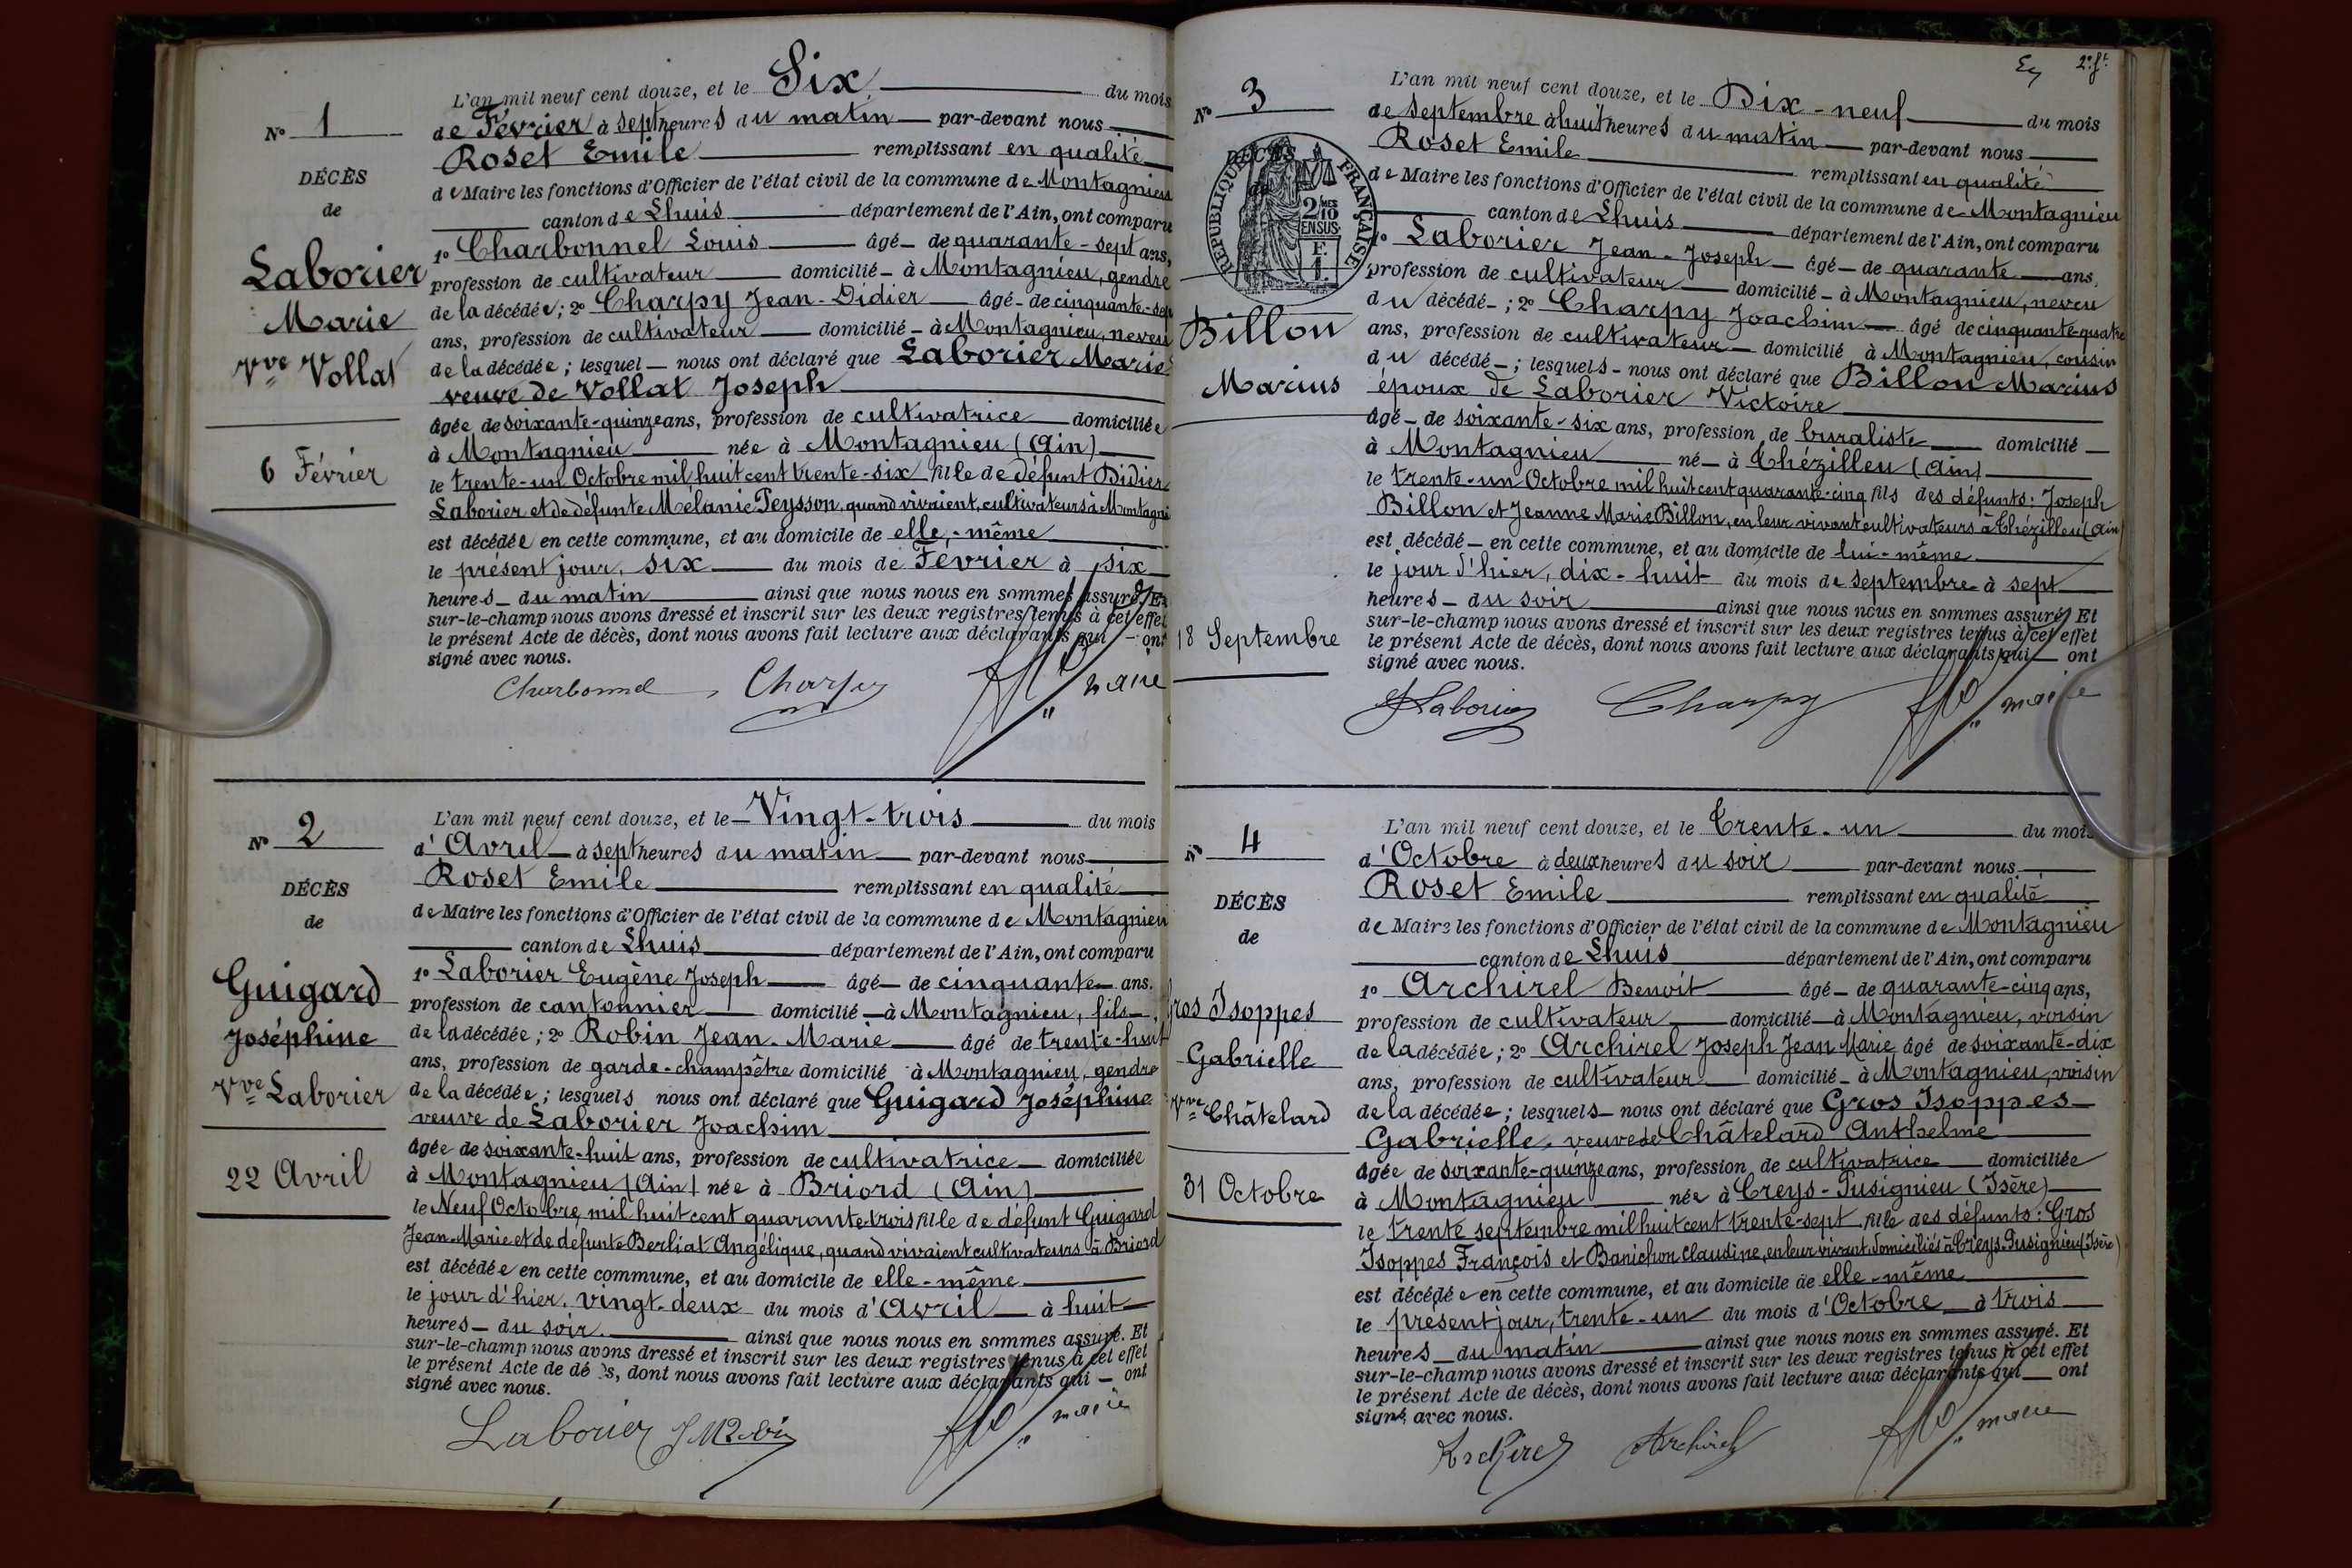 L'an mil neuf cent douze, et le Six du mois
N° 1
de Février à sept heures du matin par-devant nous
Roset Emile remplissant en qualité
DÉCÈS
de Maire les fonctions d'Officier de l'état civil de la commune de Montagnieu
de
canton de Lhuis département de l'Ain, ont comparu
1° Charbonnel Louis âgé de quarante-sept ans,
Laborier
profession de cultivateur domicilié à Montagnieu, gendre
de la décédée; 2° Charpy Jean-Didier âgé de cinquante-sep
Marie
ans, profession de cultivateur domicilié à Montagnieu, neveu
Vve Vollat
de la décédée; lesquel nous ont déclaré que Laborier Marie
veuve de Vollat Joseph
âgée de soixante-quinze ans, profession de cultivatrice domiciliée
à Montagnieu née à Montagnieu (Ain)
6 Février
le trente-un Octobre mil huit cent trente-six fille de défunt Didier
Laborier et de défunte Mélanie Teysson, quand vivaient, cultivateurs à Montagni
est décédée en cette commune, et au domicile de elle-même
le présent jour, six du mois de Février à six
heures du matin ainsi que nous nous en sommes assuré. Et
sur-le-champ nous avons dressé et inscrit sur les deux registres tenus à cet effet
le présent Acte de décès, dont nous avons fait lecture aux déclarants qui ont
signé avec nous.
Charbonnel Charpy maire
L'an mil neuf cent douze, et le Vingt-trois du mois
N° 2
d'Avril à sept heures du matin par-devant nous
Roset Emile remplissant en qualité
DÉCÈS
de Maire les fonctions d'Officier de l'état civil de la commune de Montagnieu
de
canton de Lhuis département de l'Ain, ont comparu
1° Laborier Eugène Joseph âgé de cinquante ans.
Guigard
profession de cantonnier domicilié à Montagnieu, fils
Joséphine
de la décédée; 2° Robin Jean-Marie âgé de trente-huit
ans, profession de garde-champêtre domicilié à Montagnieu, gendre
Vve Laborier
de la décédée; lesquels nous ont déclaré que Guigard Joséphine
veuve de Laborier Joachim
âgée de soixante-huit ans, profession de cultivatrice domiciliée
22 Avril
à Montagnieu (Ain) née à Briord (Ain)
le Neuf Octobre mil huit cent quarante-trois fille de défunt Guigard
Jean-Marie et de défunte Berliat Angélique, quand vivaient cultivateurs à Briord
est décédée en cette commune, et au domicile de elle-même
le jour d'hier, vingt-deux du mois d'Avril à huit
heures du soir. ainsi que nous nous en sommes assuré. Et
sur-le-champ nous avons dressé et inscrit sur les deux registres tenus à cet effet
le présent Acte de décès, dont nous avons fait lecture aux déclarants qui ont
signé avec nous.
Laborier JM Robin maire
2e ft
L'an mil neuf cent douze, et le Dix-neuf du mois
N° 3
de septembre à huit heures du matin par-devant nous
Roset Emile remplissant en qualité
DÉCÈS
de
RÉPUBLIQUE FRANÇAISE
2/10MES EN SUS
F. 1.
de Maire les fonctions d'Officier de l'état civil de la commune de Montagnieu
canton de Lhuis département de l'Ain, ont comparu
1° Laborier Jean-Joseph âgé de quarante ans,
profession de cultivateur domicilié à Montagnieu, neveu
du décédé; 2° Charpy Joachim âgé de cinquante-quatre
Billon
ans, profession de cultivateur domicilié à Montagnieu, cousin
du décédé; lesquels nous ont déclaré que Billon Marius
Marius
époux de Laborier Victoire
âgé de soixante-six ans, profession de buraliste domicilié
à Montagnieu né à Chézilleu (Ain)
le trente-un Octobre mil huit cent quarante-cinq fils des défunts: Joseph
Billon et Jeanne Marie Billon, en leur vivant cultivateurs à Chézilleu (Ain)
est décédé en cette commune, et au domicile de lui-même
le jour d'hier, dix-huit du mois de septembre à sept
heures du soir ainsi que nous nous en sommes assuré. Et
18 Septembre
sur-le-champ nous avons dressé et inscrit sur les deux registres tenus à cet effet
le présent Acte de décès, dont nous avons fait lecture aux déclarants qui ont
signé avec nous.
JLaborier Charpy maire
L'an mil neuf cent douze, et le Trente-un du mois
N° 4
d'Octobre à deux heures du soir par-devant nous
Roset Emile remplissant en qualité
DÉCÈS
de Maire les fonctions d'Officier de l'état civil de la commune de Montagnieu
de
canton de Lhuis département de l'Ain, ont comparu
1° Archirel Benoit âgé de quarante-cinq ans,
Gros Isoppes
profession de cultivateur domicilié à Montagnieu, voisin
Gabrielle
de la décédée; 2° Archirel Joseph Jean Marie âgé de soixante-dix
ans, profession de cultivateur domicilié à Montagnieu, voisin
Vve Châtelard
de la décédée; lesquels nous ont déclaré que Gros Isoppes
Gabrielle, veuve de Châtelard Anthelme
âgée de soixante-quinze ans, profession de cultivatrice domiciliée
31 Octobre
à Montagnieu née à Creys-Pusignieu (Isère)
le trente septembre mil huit cent trente-sept fille des défunts: Gros
Isoppes François et Banichon Claudine, en leur vivant domiciliés à Creys-Pusignieu (Isère)
est décédée en cette commune, et au domicile de elle-même
le présent jour, trente-un du mois d'Octobre à trois
heures du matin ainsi que nous nous en sommes assuré. Et
sur-le-champ nous avons dressé et inscrit sur les deux registres tenus à cet effet
le présent Acte de décès, dont nous avons fait lecture aux déclarants qui ont
signé avec nous.
Archirel Archirel maire